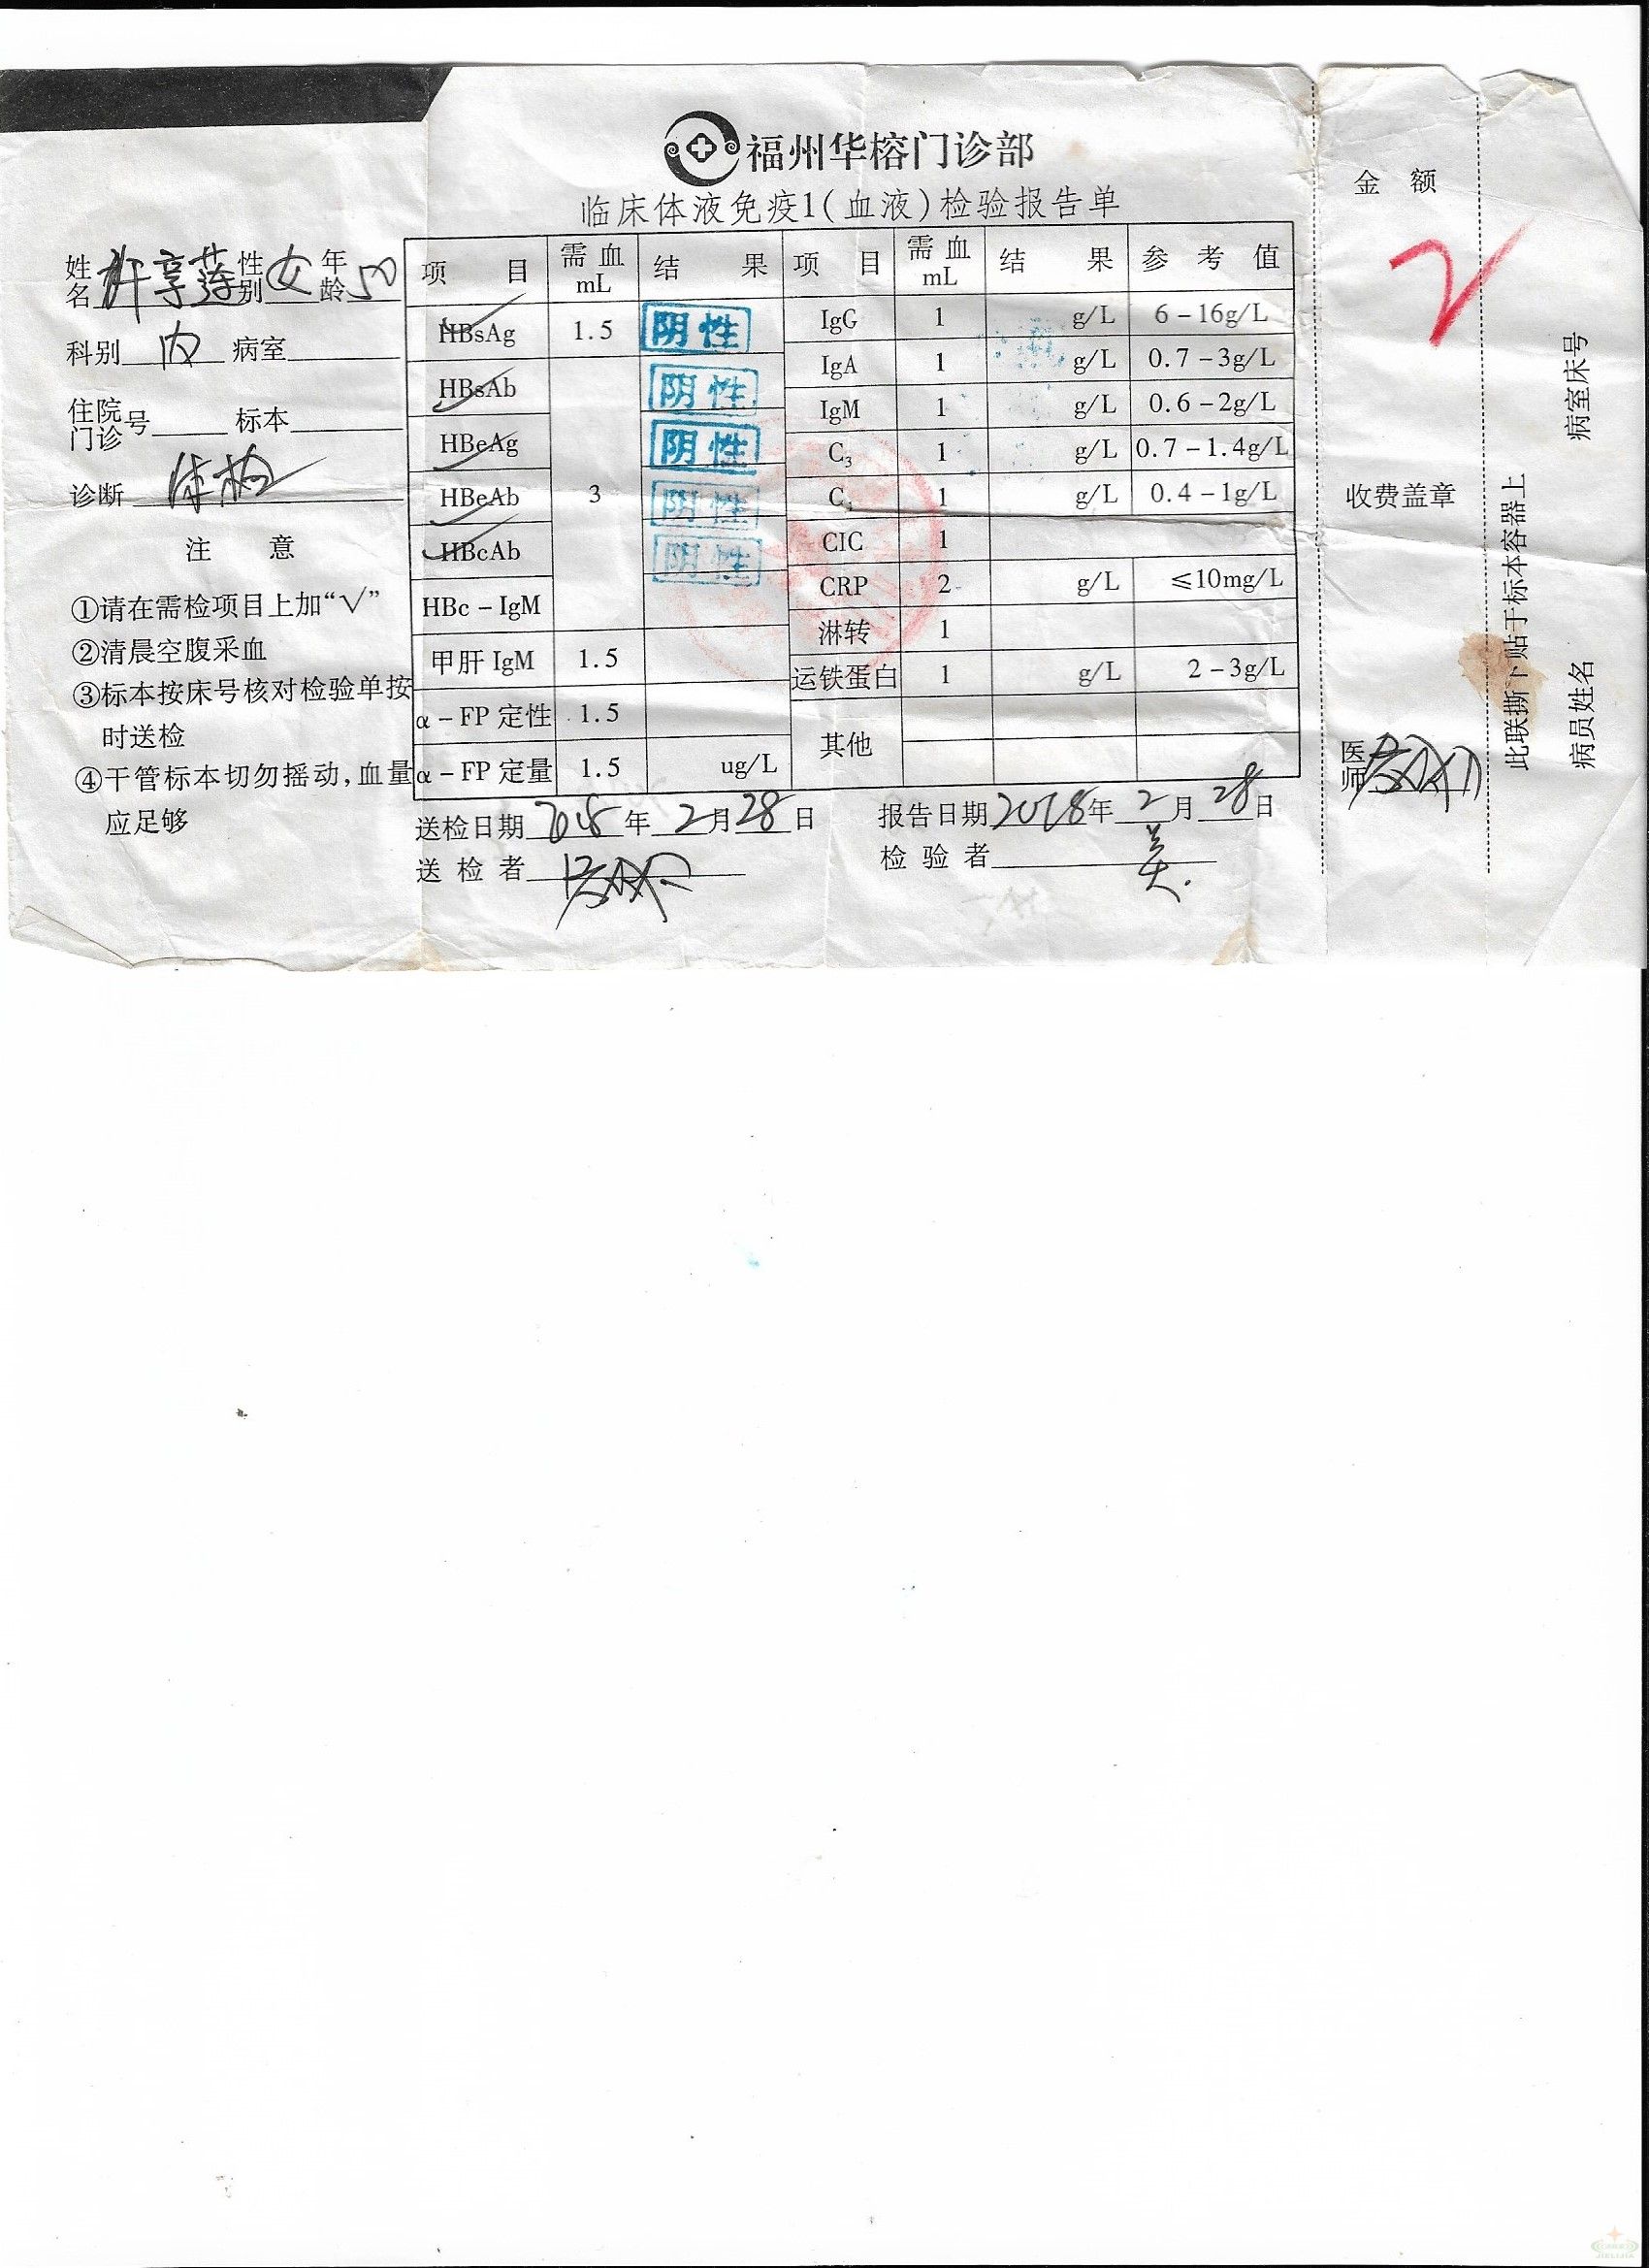 福州华榕门诊部
临床体液免疫1(血液)检验报告单
姓名 许享莲 性别 女 年龄 50
科别 内 病室
住院门诊号 标本
诊断 体检
注 意
①请在需检项目上加“√”
②清晨空腹采血
③标本按床号核对检验单按
时送检
④干管标本切勿摇动,血量
应足够
项 目 需血 mL 结 果 项 目 需血 mL 结 果 参 考 值
HBsAg 1.5 阴性 IgG 1 g/L 6-16g/L
HBsAb 阴性 IgA 1 g/L 0.7-3g/L
HBeAg 阴性 IgM 1 g/L 0.6-2g/L
HBeAb 3 阴性 C3 1 g/L 0.7-1.4g/L
HBcAb 阴性 C4 1 g/L 0.4-1g/L
HBc-IgM CIC 1
甲肝 IgM 1.5 CRP 2 g/L ≤10mg/L
α-FP 定性 1.5 淋转 1
α-FP 定量 1.5 ug/L 运铁蛋白 1 g/L 2-3g/L
其他
送检日期 2018 年 2 月 28 日 报告日期 2018 年 2 月 28 日
送 检 者 检 验 者 美
金 额
收费盖章
医师
此联撕下贴于标本容器上
病室床号
病员姓名